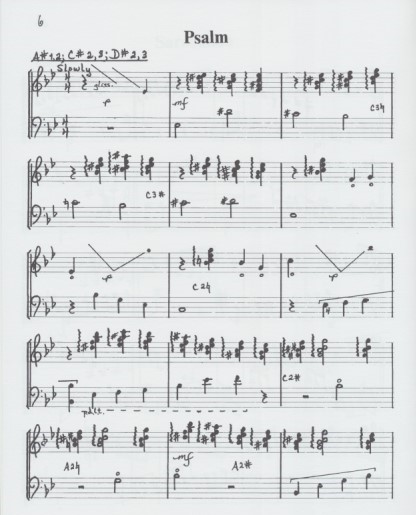 6
Psalm
A#1,2; C#2,3; D#2,3
Slowly
gliss.
p
mf
C3♮
C3#
p
C2♮
p
C2#
p.d.l.t.
A2♮
mf
A2#